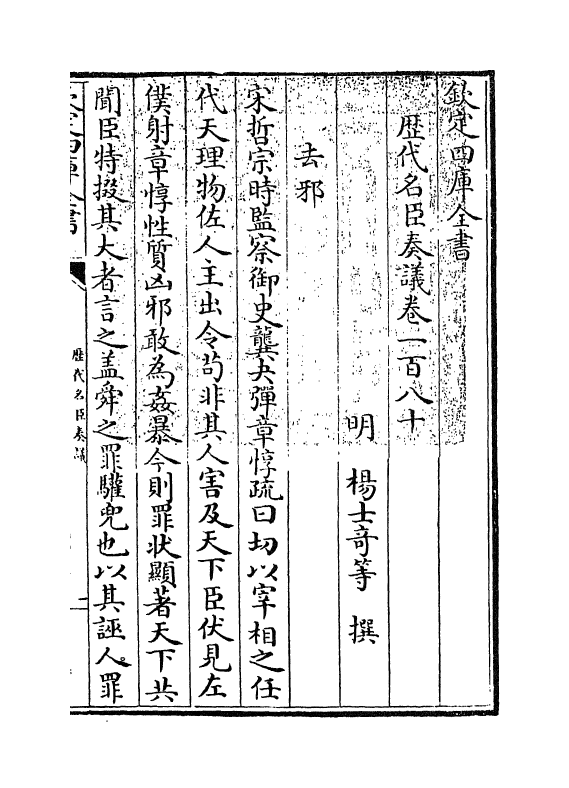 欽定四庫全書
歴代名臣奏議卷一百八十
明 楊士竒等 撰
去邪
宋哲宗時監察御史龔夬彈章惇疏曰切以宰相之任
代天理物佐人主出令茍非其人害及天下臣伏見左
僕射章惇性質凶邪敢為姦暴今則罪狀顯著天下共
聞臣特掇其大者言之盖舜之罪驩兜也以其誣人罪
欽定四庫全書
歴代名臣奏議
一